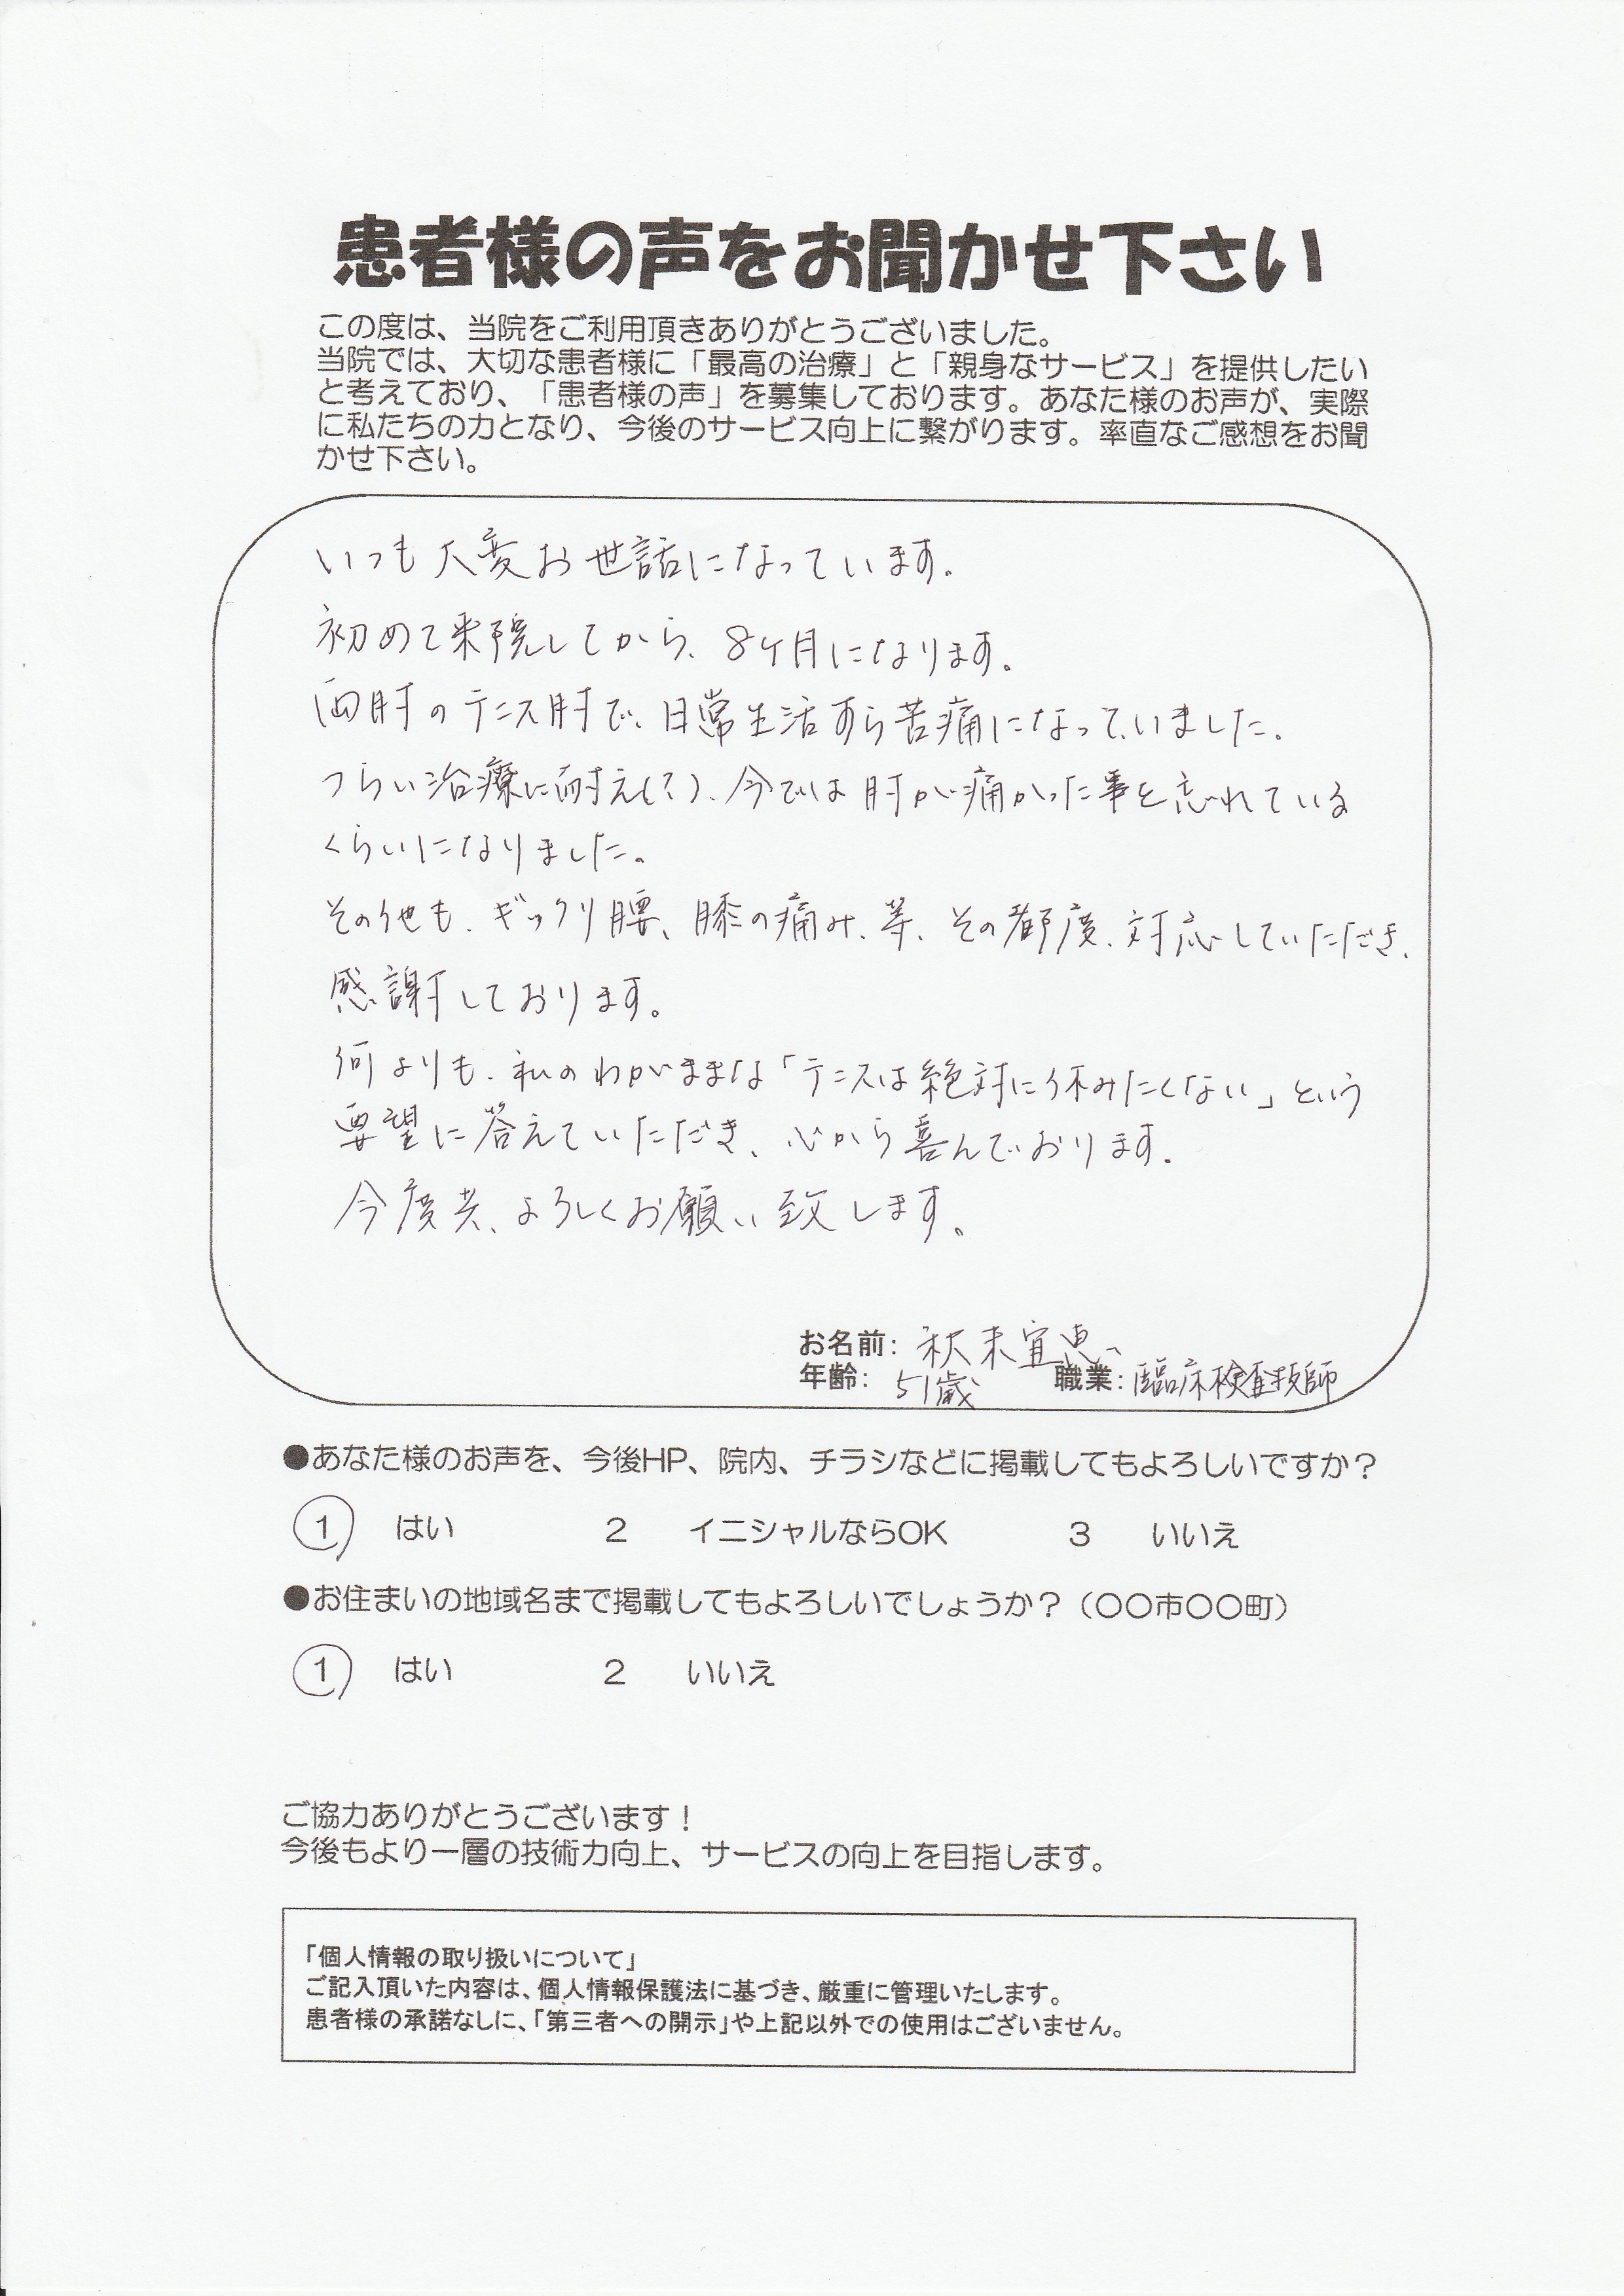 患者様の声をお聞かせ下さい
この度は、当院をご利用頂きありがとうございました。
当院では、大切な患者様に「最高の治療」と「親身なサービス」を提供したい
と考えており、「患者様の声」を募集しております。あなた様のお声が、実際
に私たちの力となり、今後のサービス向上に繋がります。率直なご感想をお聞
かせ下さい。
いつも大変お世話になっています。
初めて来院してから、8ヶ月になります。
両肘のテニス肘で、日常生活すら苦痛になっていました。
つらい治療に耐え(?)、今では肘が痛かった事を忘れている
くらいになりました。
その他も、ギックリ腰、膝の痛み、等、その都度、対応していただき、
感謝しております。
何よりも、私のわがままな「テニスは絶対に休みたくない」という
要望に答えていただき、心から喜んでおります。
今度共、よろしくお願い致します。
お名前: 秋末宜恵
年齢: 51歳 職業: 臨床検査技師
●あなた様のお声を、今後HP、院内、チラシなどに掲載してもよろしいですか?
1 はい 2 イニシャルならOK 3 いいえ
●お住まいの地域名まで掲載してもよろしいでしょうか?(〇〇市〇〇町)
1 はい 2 いいえ
ご協力ありがとうございます!
今後もより一層の技術力向上、サービスの向上を目指します。
「個人情報の取り扱いについて」
ご記入頂いた内容は、個人情報保護法に基づき、厳重に管理いたします。
患者様の承諾なしに、「第三者への開示」や上記以外での使用はございません。